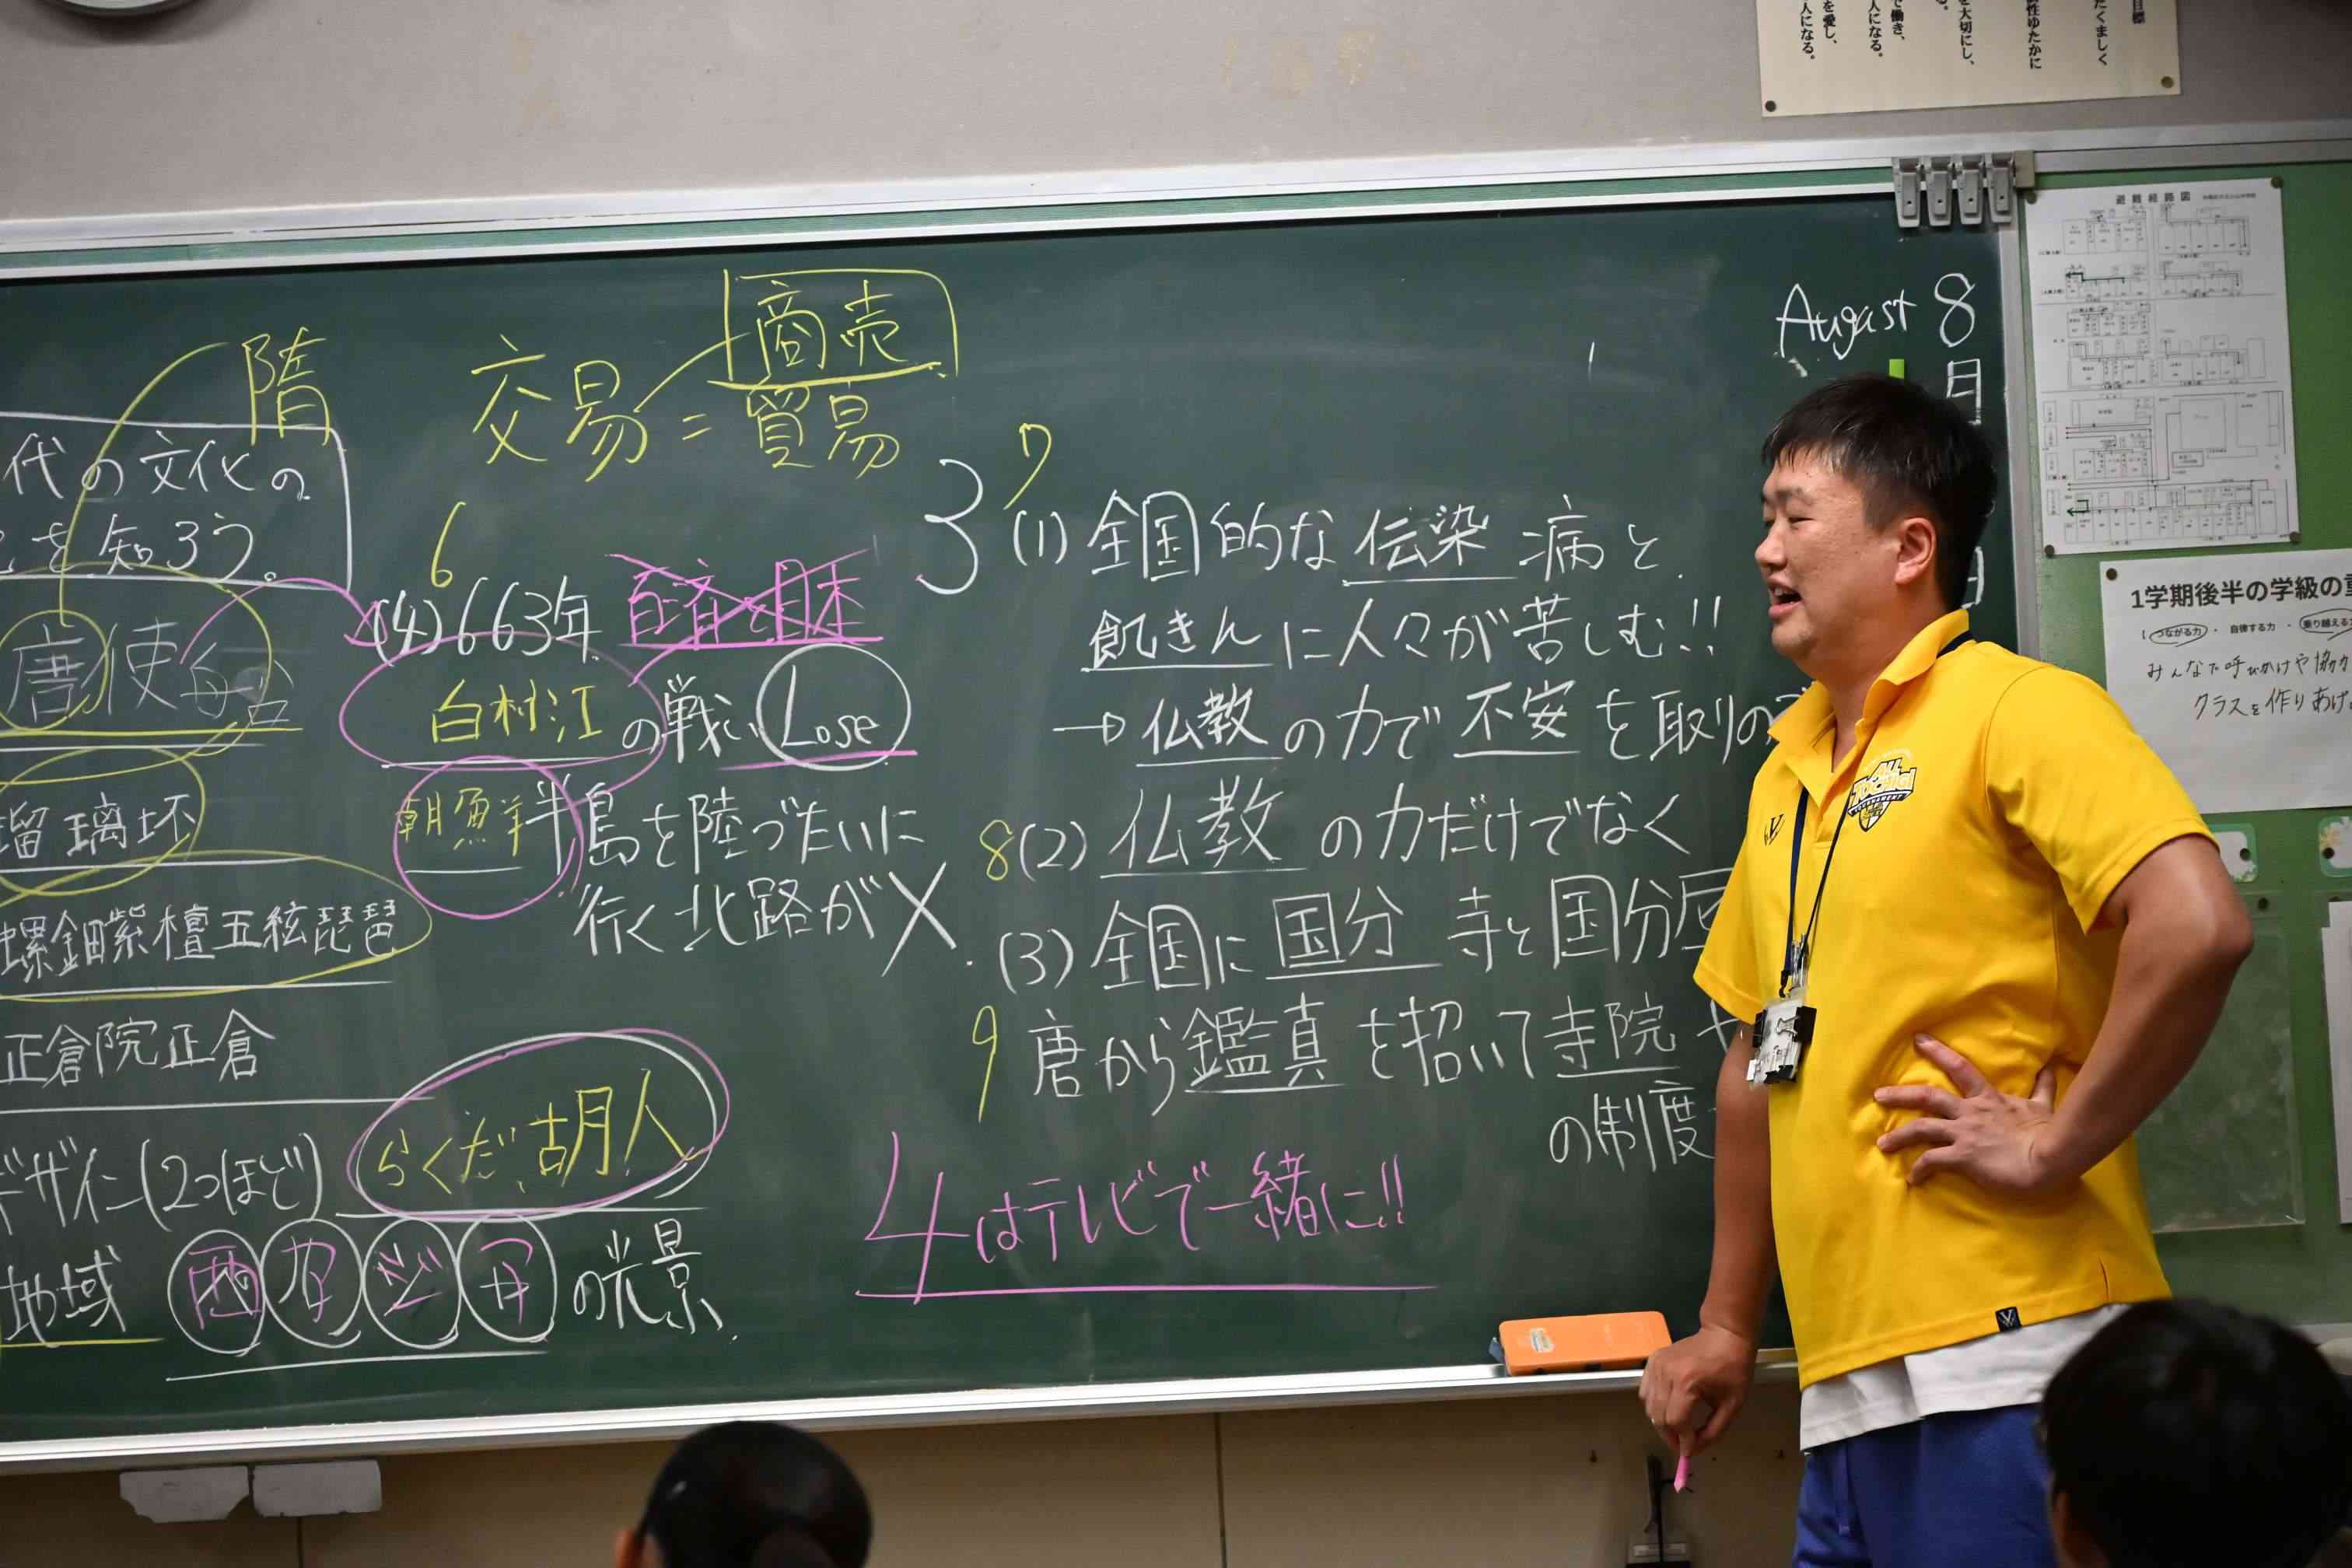 隋
交易=貿易
商売
代の文化の
を知ろう。
唐使
瑠璃坏
螺鈿紫檀五絃琵琶
正倉院正倉
デザイン(2つほど)
らくだ、胡人
地域
西アジア
の光景
6
(4)663年
百済と日本
白村江の戦い Lose
朝鮮半島を陸づたいに
行く北路が×
3
7
(1)全国的な伝染病と
飢きんに人々が苦しむ!!
→仏教の力で不安を取りの
8(2)仏教の力だけでなく
(3)全国に国分寺と国分
9
唐から鑑真を招いて寺院や
の制度
4はテレビで一緒に!!
August 8
日
目標
たくましく
性ゆたかに
を大切にし、
で働き、
人になる。
を愛し、
人になる。
避難経路図
1学期後半の学級の
つながる力・自律する力・乗り越える
みんなで呼びかけや協力
クラスを作りあげ
ALL
TOCHIGI
TOURNAMENT